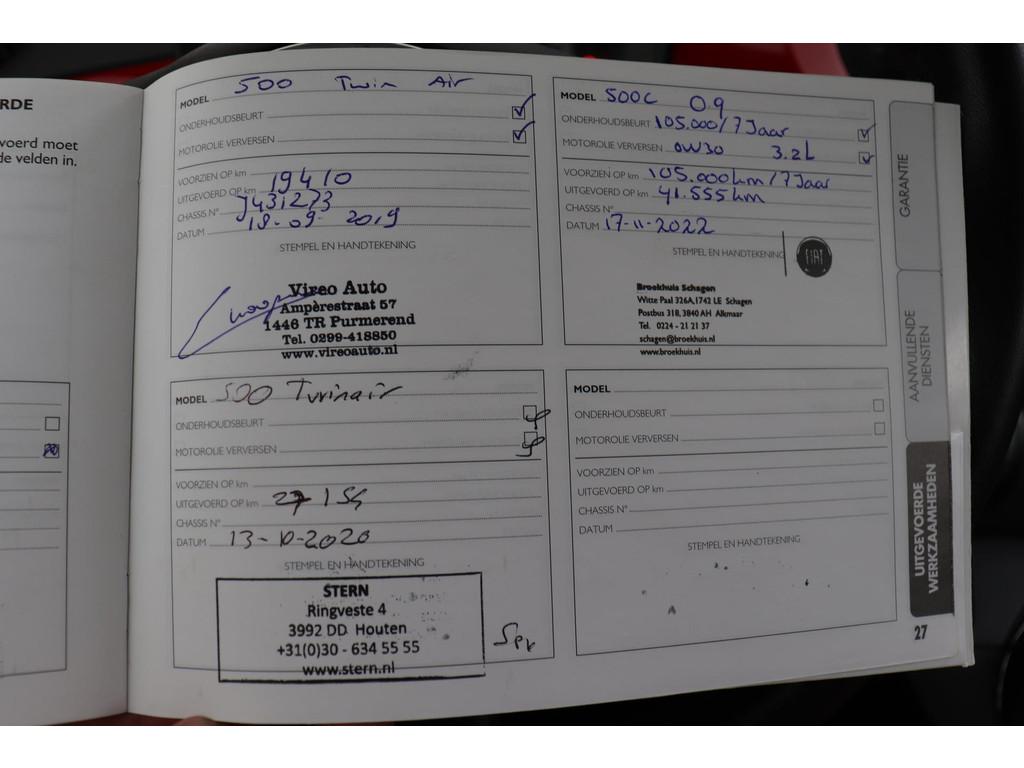 RDE
voerd moet
de velden in.
MODEL 500 Twin Air
ONDERHOUDSBEURT
MOTOROLIE VERVERSEN
VOORZIEN OP km
UITGEVOERD OP km 19410
CHASSIS N° J431273
DATUM 18-09-2019
STEMPEL EN HANDTEKENING
Vireo Auto
Ampèrestraat 57
1446 TR Purmerend
Tel. 0299-418850
www.vireoauto.nl
MODEL 500C 0.9
ONDERHOUDSBEURT 105.000/7 Jaar
MOTOROLIE VERVERSEN 0W30 3.2L
VOORZIEN OP km 105.000km/7 Jaar
UITGEVOERD OP km 41.555km
CHASSIS N°
DATUM 17-11-2022
STEMPEL EN HANDTEKENING
FIAT
Broekhuis Schagen
Witte Paal 326A, 1742 LE Schagen
Postbus 318, 3840 AH Alkmaar
Tel. 0224 - 21 21 37
schagen@broekhuis.nl
www.broekhuis.nl
MODEL 500 Twinair
ONDERHOUDSBEURT
MOTOROLIE VERVERSEN
VOORZIEN OP km
UITGEVOERD OP km 27154
CHASSIS N°
DATUM 13-10-2020
STEMPEL EN HANDTEKENING
STERN
Ringveste 4
3992 DD Houten
+31(0)30 - 634 55 55
www.stern.nl
MODEL
ONDERHOUDSBEURT
MOTOROLIE VERVERSEN
VOORZIEN OP km
UITGEVOERD OP km
CHASSIS N°
DATUM
STEMPEL EN HANDTEKENING
GARANTIE
AANVULLENDE
DIENSTEN
UITGEVOERDE
WERKZAAMHEDEN
27